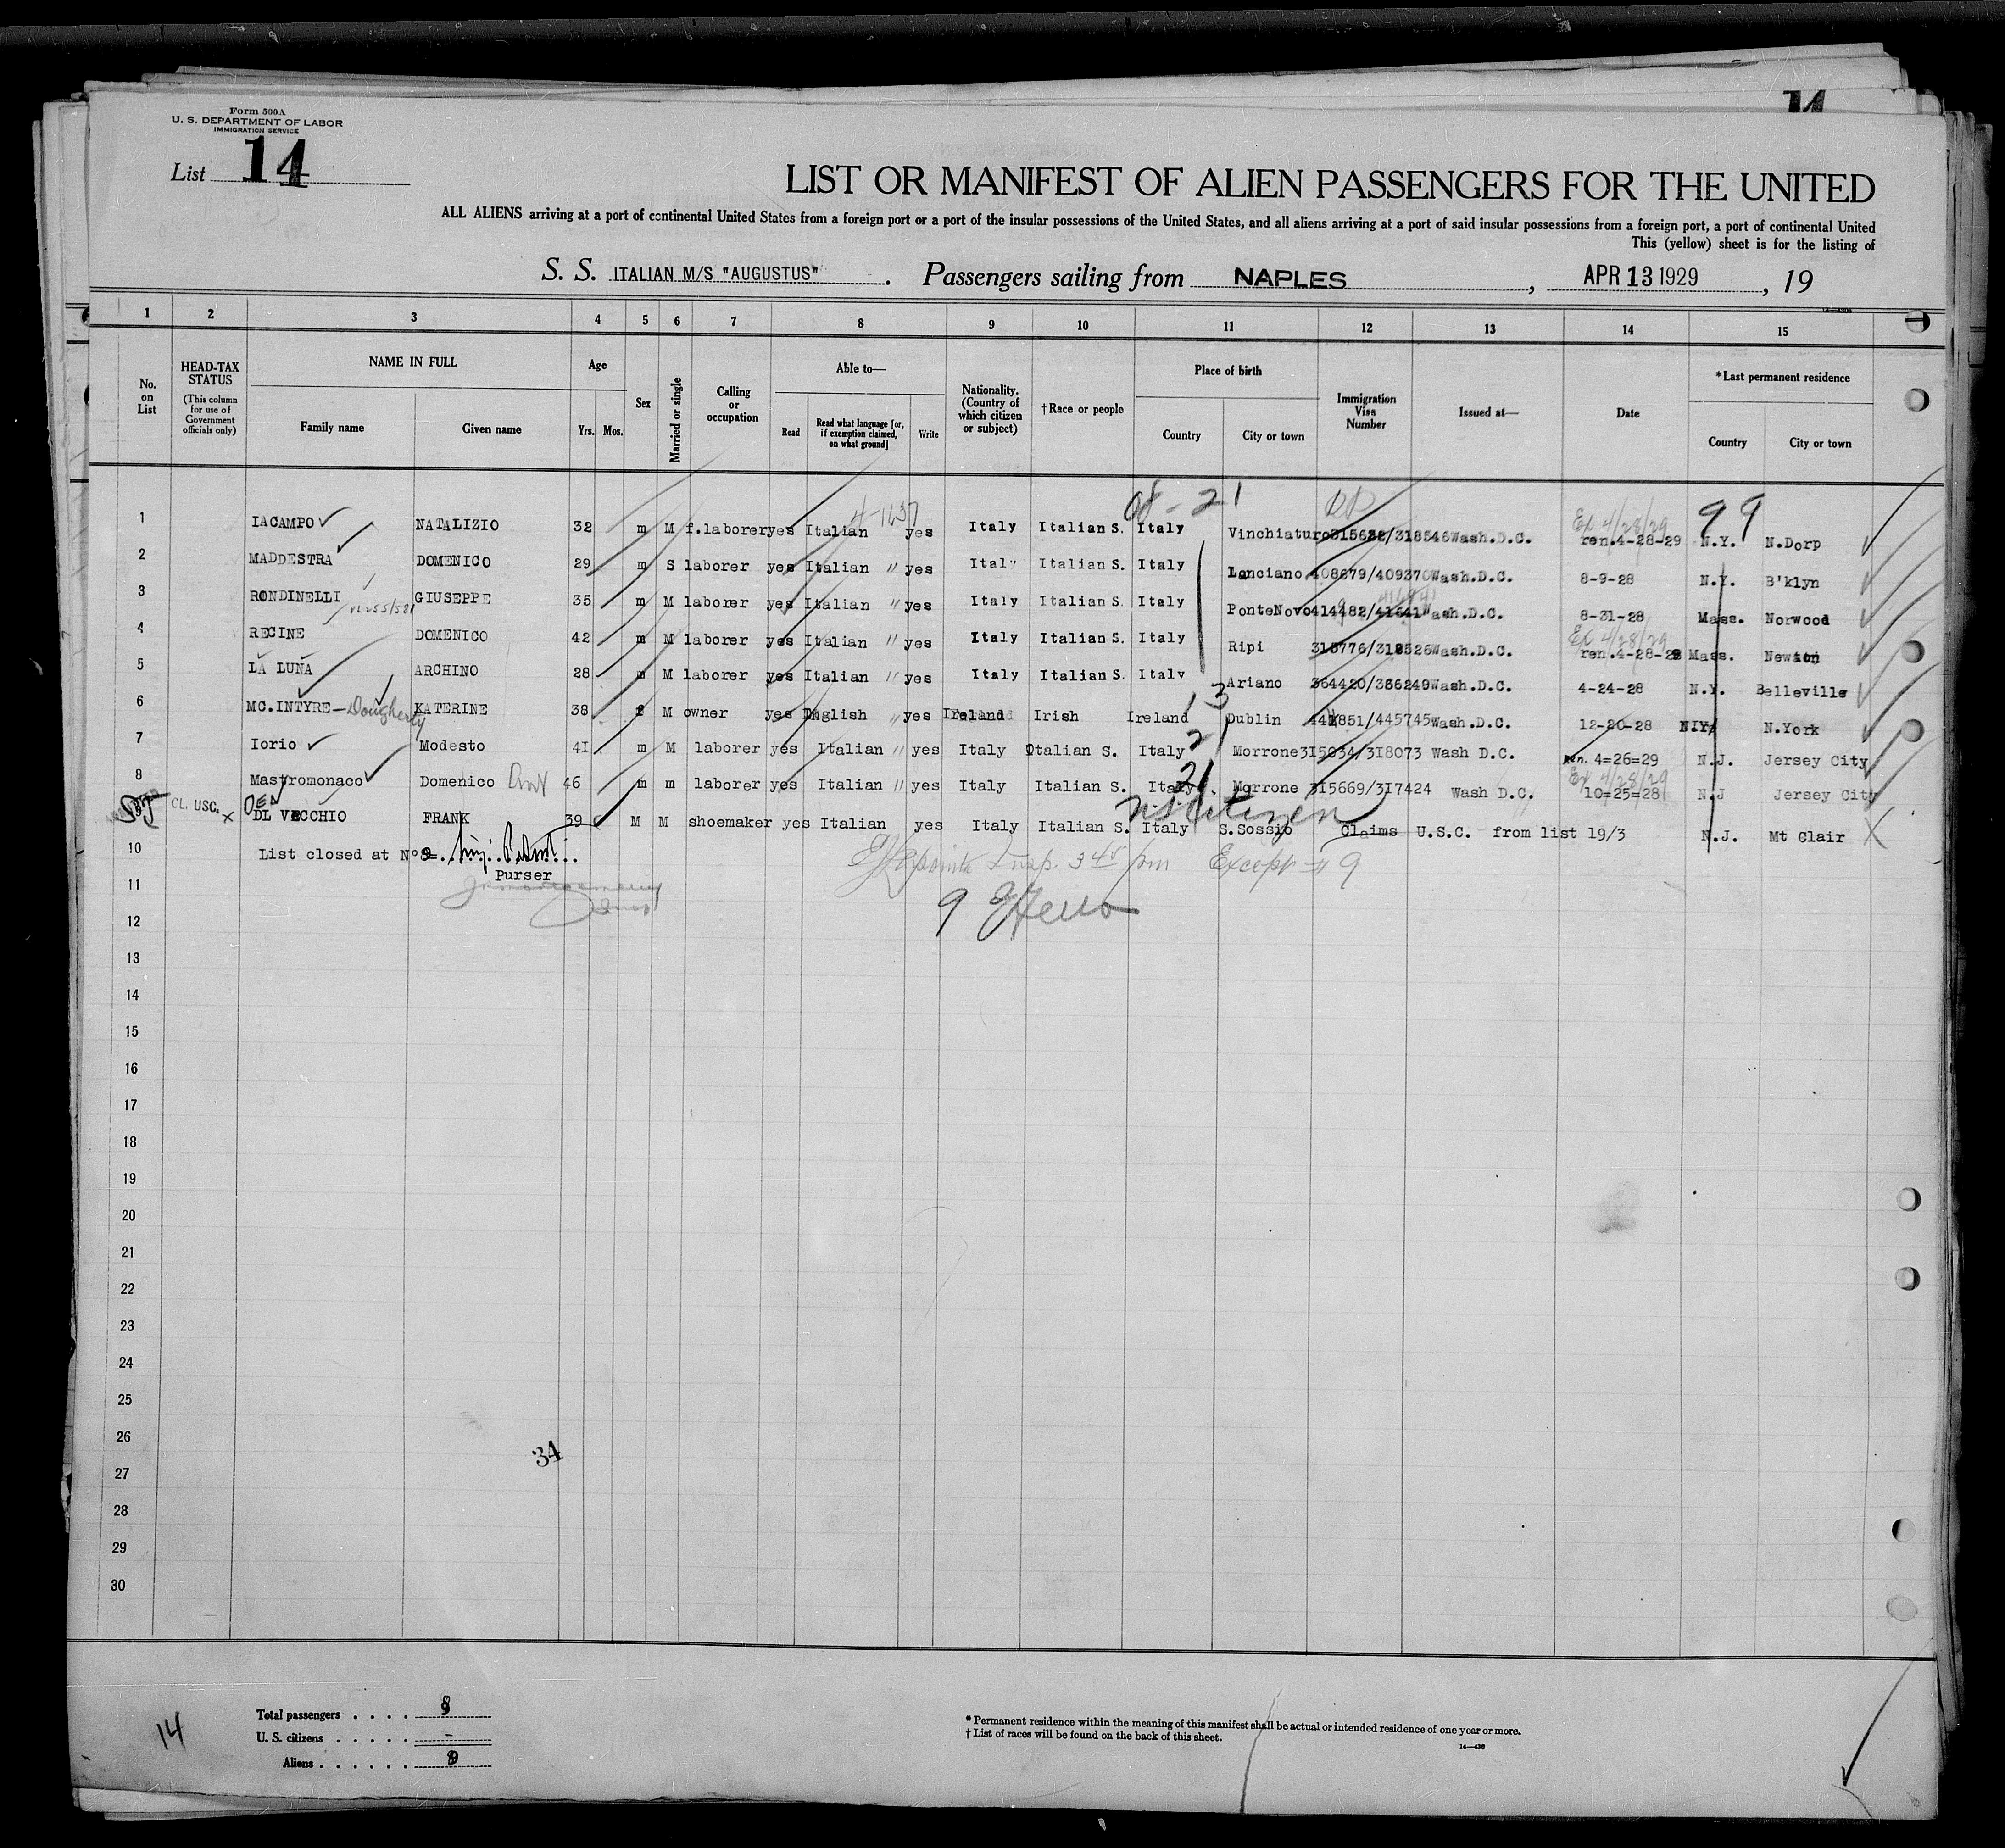 Form 500A
U. S. DEPARTMENT OF LABOR
IMMIGRATION SERVICE
List 14
14
LIST OR MANIFEST OF ALIEN PASSENGERS FOR THE UNITED
ALL ALIENS arriving at a port of continental United States from a foreign port or a port of the insular possessions of the United States, and all aliens arriving at a port of said insular possessions from a foreign port, a port of continental United
This (yellow) sheet is for the listing of
S. S. ITALIAN M/S "AUGUSTUS" . Passengers sailing from NAPLES , APR 13 1929 , 19
1 2 3 4 5 6 7 8 9 10 11 12 13 14 15
No. on List
HEAD-TAX STATUS (This column for use of Government officials only)
NAME IN FULL
Family name Given name
Age
Yrs. Mos.
Sex
Married or single
Calling or occupation
Able to—
Read Read what language [or, if exemption claimed, on what ground] Write
Nationality. (Country of which citizen or subject)
†Race or people
Place of birth
Country City or town
Immigration Visa Number
Issued at—
Date
*Last permanent residence
Country City or town
98 - 21
99
4-1637
Ex 4/28/29
1 IACAMPO NATALIZIO 32 m M f.laborer yes Italian yes Italy Italian S. Italy Vinchiaturo 315682/318546 Wash.D.C. ren.4-28-29 N.Y. N.Dorp
2 MADDESTRA DOMENICO 29 m S laborer yes Italian " yes Italy Italian S. Italy Lanciano 408679/409370 Wash.D.C. 8-9-28 N.Y. B'klyn
3 RONDINELLI GIUSEPPE 35 m M laborer yes Italian " yes Italy Italian S. Italy PonteNovo 414482/41641 Wash.D.C. 8-31-28 Mass. Norwood
Ex 4/28/29
4 RECINE DOMENICO 42 m M laborer yes Italian " yes Italy Italian S. Italy Ripi 315776/318526 Wash.D.C. ren.4-28-28 Mass. Newton
5 LA LUNA ARCHINO 28 m M laborer yes Italian " yes Italy Italian S. Italy Ariano 364420/366249 Wash.D.C. 4-24-28 N.Y. Belleville
6 MC.INTYRE—Dougherty KATERINE 38 f M owner yes English " yes Ireland Irish Ireland 13 Dublin 441851/445745 Wash.D.C. 12-20-28 N.Y. N.York
7 Iorio Modesto 41 m M laborer yes Italian " yes Italy Italian S. Italy 21 Morrone 315034/318073 Wash D.C. ren. 4=26=29 N.J. Jersey City
Ex 4/28/29
8 Mastromonaco Domenico 46 m m laborer yes Italian " yes Italy Italian S. Italy 21 Morrone 315669/317424 Wash D.C. 10=25=28 N.J Jersey City
US Citizen
CL. USC. x DEL VECCHIO FRANK 39 M M shoemaker yes Italian yes Italy Italian S. Italy S.Sossio Claims U.S.C. from list 19/3 N.J. Mt Clair X
10 List closed at No
Insp. 3 45 pm Except # 9
Purser
11
12
9
13
14
15
16
17
18
19
20
21
22
23
24
25
26
34
27
28
29
30
14
Total passengers . . . . 9
U. S. citizens . . . . . -
Aliens . . . . . . 9
* Permanent residence within the meaning of this manifest shall be actual or intended residence of one year or more.
† List of races will be found on the back of this sheet.
14—430